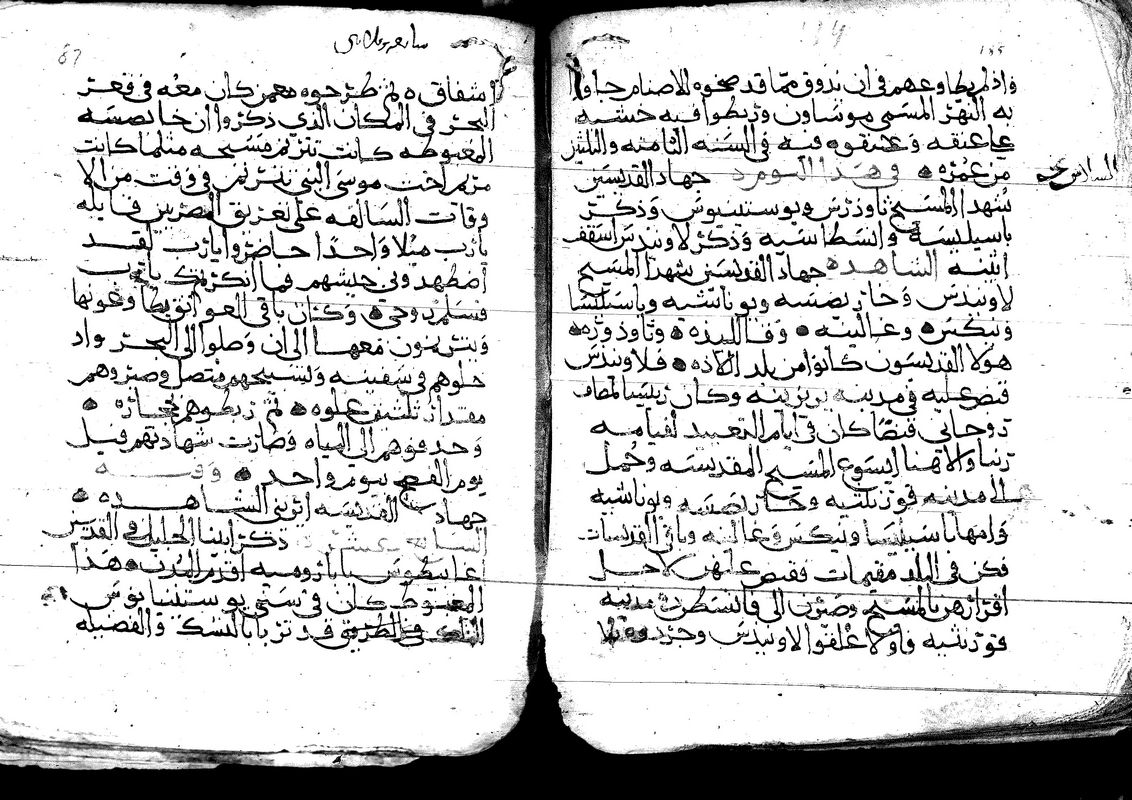 واذ لم يطاوعهم في ان يذوق مما قد ضحوه للاصنام جاوا
به النهر المسمى موشاون وربطوا فيه خشبه
على عنقه وغرقوه فيه في السنه الثامنه والثلثين
من عمره في هذا اليوم جهاد القديسين
شهدا المسيح تاودرس ويوستينيوس وذكر
باسيليسه وانسطاسيه وذكر لاونيدس اسقف
اثينه الشاهده جهاد القديسين شهدا المسيح
لاونيدس وخاريصسه ويونانسيه وباسيليسا
ونيكس وغالينه وقالليده وتاودوره
هولا القديسون كانوا من بلد الاده فلاونيدس
قبض عليه في مدينه تريزينه وكان رييسا لمصاف
روحاني قبضا كان في ايام التعييد لقيامه
ربنا والاهنا ايسوع المسيح المقدسه وحمل
الى مدينه قورنثيه وخاريصسه ويونانسيه
وامها باسيليسا ونيكس وغالينه وباقي القديسات
فكن في البلد مقيمات فقبض عليهن لاجل
اقرارهن بالمسيح وصرن الى قانسطرن مدينه
قورنثيه فاولا علقوا لاونيدس وجرد
السادس عشر
87
امتفاق ه ثم طرحوه معمن كان معه في قعر
البحر في المكان الذي ذكروا ان خاريصسه
المغبوطه كانت تترنم مسبحه مثلما كانت
مريم اخت موسى النبي تترنم في وقت من الا
وقات السالفه على تغريق المصريين قايله
يارب ميلا واحدا حاضروا يارب لقد
اضطهدوني جيشهم فما انكرتك يارب
فسلم روحي وكان باقي العواتق يطاوعونها
ويترنمون معها الى ان وصلوا الى البحر واد
خلوهم في سفينه وتسبيحهم متصل وصيروهم
مقدار ثلثين غلوه ثم ربطوهم بحجاره
وحدفوهم الى المياه وصارت شهادتهم قبل
يوم الفصح بيوم واحد وفيه
جهاد القديسه ايريني الشاهده
السابع عشر ذكر ابينا الجليل في القديسين
اغابيطوس بابا روميه اقدم المدن هذا
المغبوط كان في سني يوستينيانوس
الملك في الطريق قد تربا بالنسك والفضيله